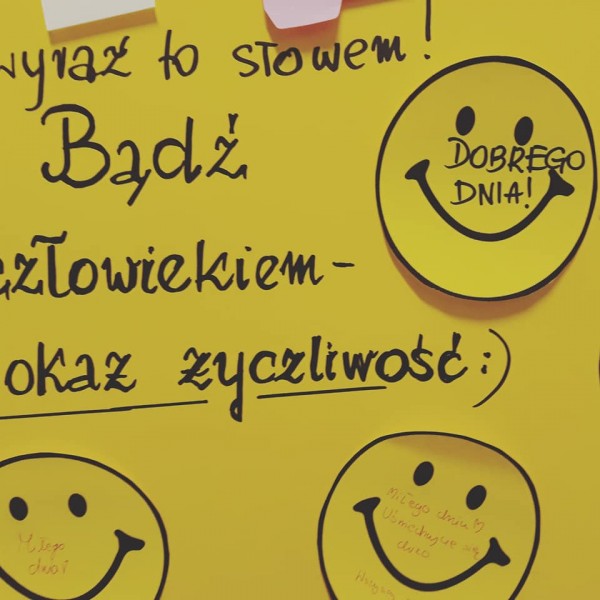 wyraź to słowem!
Bądź
człowiekiem-
okaż życzliwość:)
DOBREGO
DNIA!
Miłego
dnia!
Miłego dnia
Uśmiechajcie się